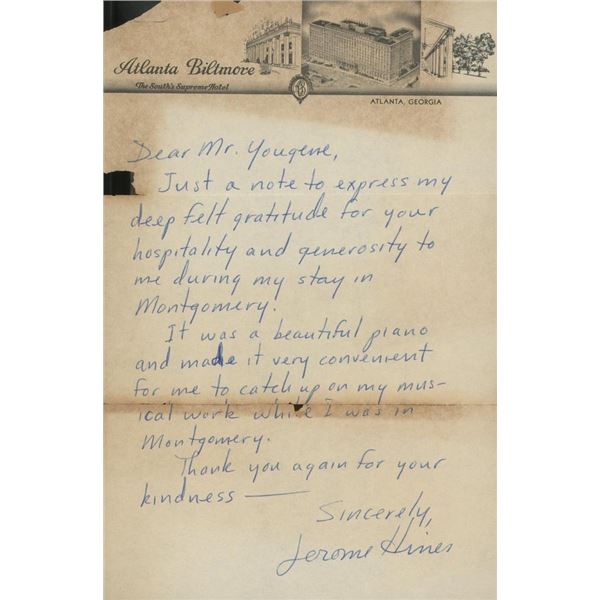 Atlanta Biltmore
The South's Supreme Hotel
ATLANTA, GEORGIA
Dear Mr. Yougene,
Just a note to express my
deep felt gratitude for your
hospitality and generosity to
me during my stay in
Montgomery.
It was a beautiful piano
and made it very convenient
for me to catch up on my mus-
ical work while I was in
Montgomery.
Thank you again for your
kindness —
Sincerely,
Jerome Hines